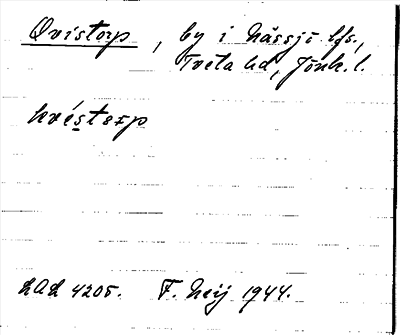 Qvistorp, by i Nässjö lfs.,
Tveta hd, Jönk. l.
kvístərp
LAL 4205. F. Neij 1944.